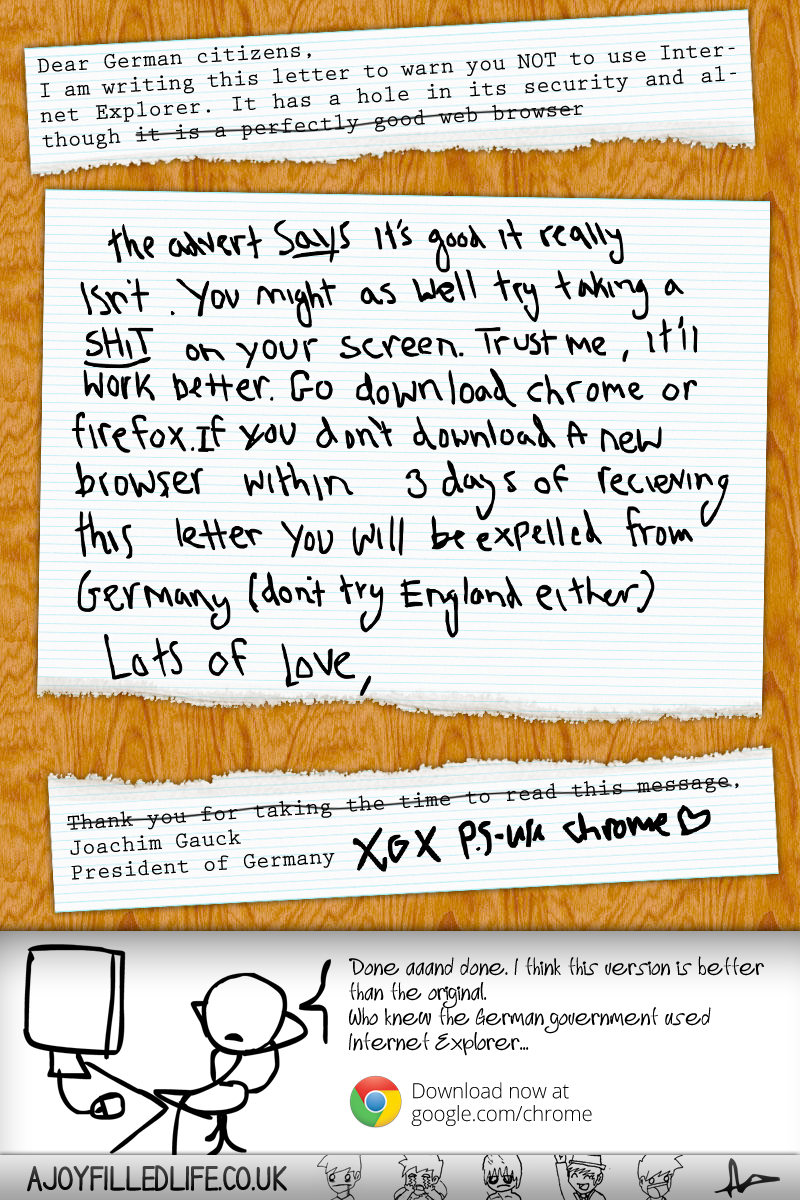 Dear German citizens,
I am writing this letter to warn you NOT to use Inter-
net Explorer. It has a hole in its security and al-
though it is a perfectly good web browser
the advert says it's good it really
isn't. You might as well try taking a
SHIT on your screen. Trust me, it'll
work better. Go download chrome or
firefox. If you don't download A new
browser within 3 days of recieving
this letter you will be expelled from
Germany (don't try England either)
Lots of Love,
Thank you for taking the time to read this message,
Joachim Gauck
President of Germany
XOX P.S-use chrome♡
Done aaand done. I think this version is better
than the original.
Who knew the German government used
Internet Explorer...
Download now at
google.com/chrome
AJOYFILLEDLIFE.CO.UK